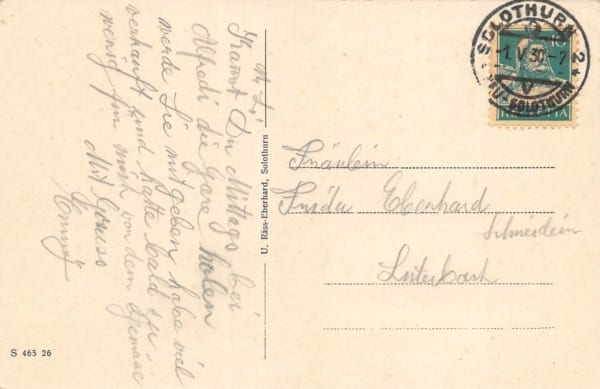 M. L.!
Kannst Du Mittags bei
Alfredi die Ware holen
werde Sie mitgeben habe viel
verkauft und hatte bald zu
wenig für mich von dem Gemüse
Mit Gruss
Emmy
U. Räss-Eberhard, Solothurn
S 465 26
SOLOTHURN 2
-1.V.30-7
V
SOLOTHURN
10
HELVETIA
Fräulein
Frida Eberhard
Schneiderin
Luterbach